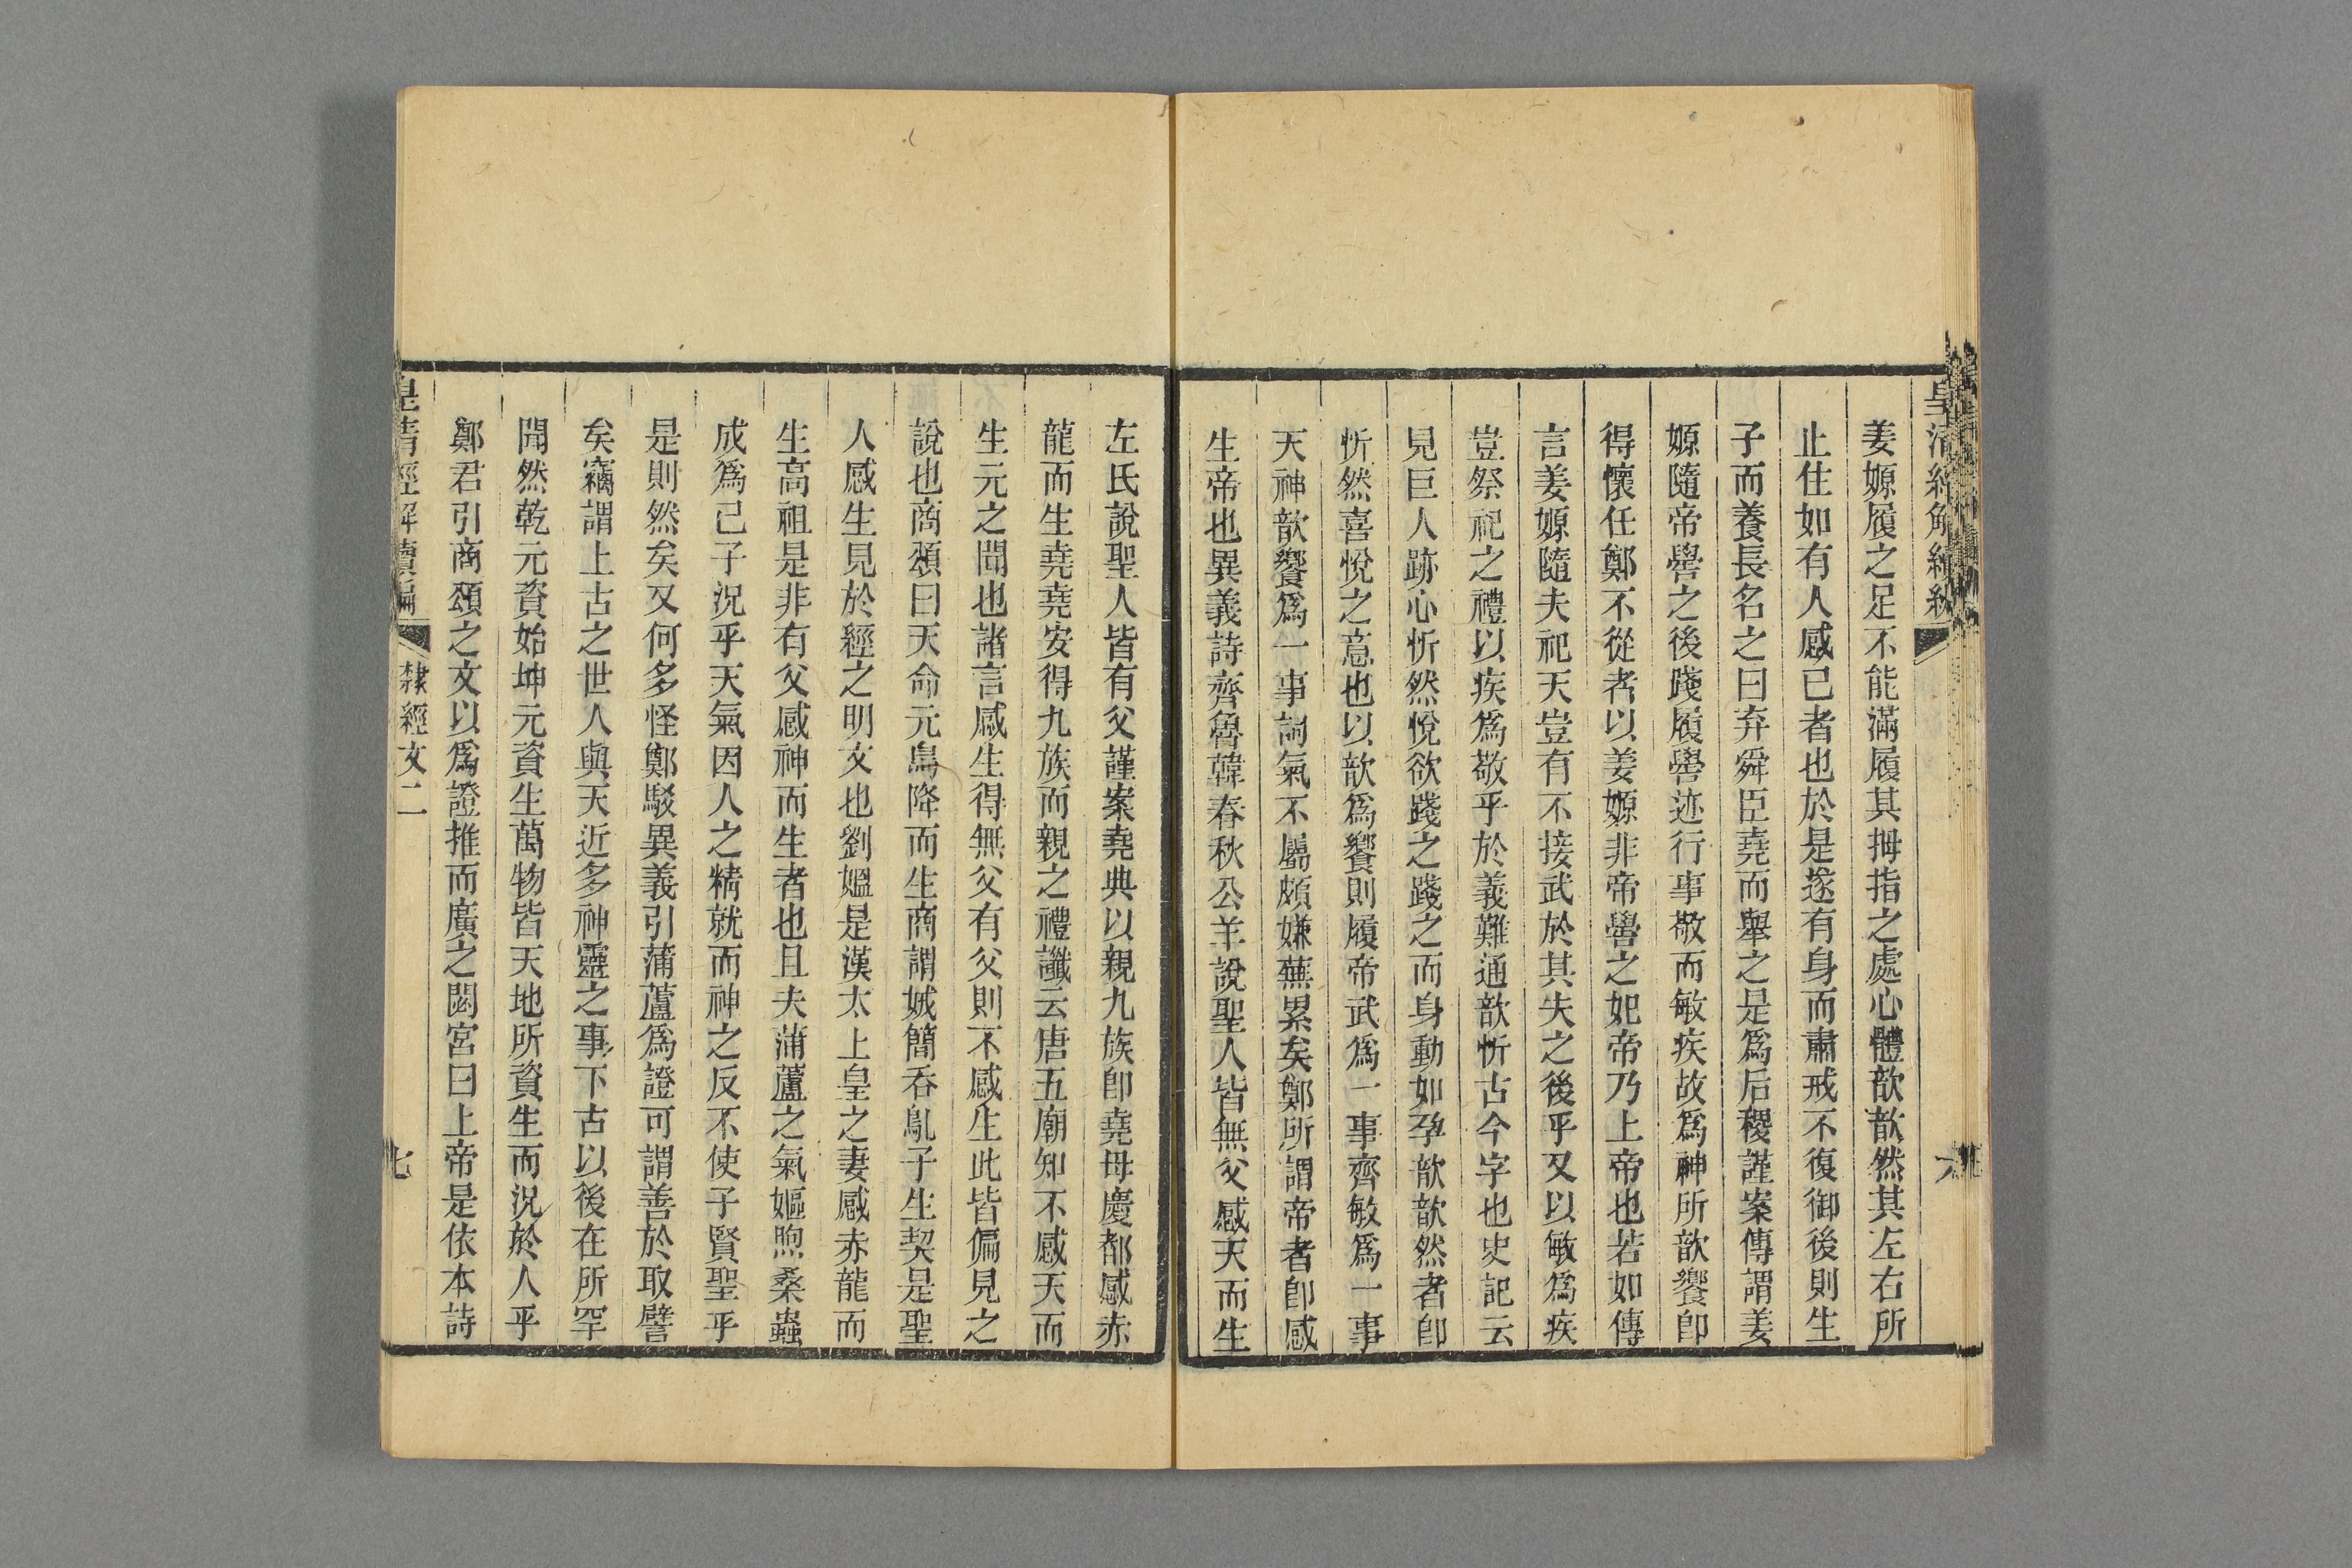 姜嫄履之足不能滿履其拇指之處心體歆歆然其左右所
止住如有人感己者也於是遂有身而肅戒不復御後則生
子而養長名之曰弃舜臣堯而舉之是爲后稷謹案傳謂姜
嫄隨帝嚳之後踐履嚳迹行事敬而敏疾故爲神所歆饗卽
得懷任鄭不從者以姜嫄非帝嚳之妃帝乃上帝也若如傳
言姜嫄隨夫祀天豈有不接武於其夫之後乎又以敏爲疾
豈祭祀之禮以疾爲敬乎於義難通歆忻古今字也史記云
見巨人跡心忻然悅欲踐之踐之而身動如孕歆歆然者卽
忻然喜悅之意也以歆爲饗則履帝武爲一事齊敏爲一事
天神歆饗爲一事詞氣不屬頗嫌蕪累矣鄭所謂帝者卽感
生帝也異義詩齊魯韓春秋公羊說聖人皆無父感天而生
左氏說聖人皆有父謹案堯典以親九族卽堯母慶都感赤
龍而生堯堯安得九族而親之禮讖云唐五廟知不感天而
生元之聞也諸言感生得無父有父則不感生此皆偏見之
說也商頌曰天命元鳥降而生商謂娀簡吞鳦子生契是聖
人感生見於經之明文也劉媼是漢太上皇之妻感赤龍而
生高祖是非有父感神而生者也且夫蒲蘆之氣嫗煦桑蟲
成爲己子況乎天氣因人之精就而神之反不使子賢聖乎
是則然矣又何多怪鄭駁異義引蒲蘆爲證可謂善於取譬
矣竊謂上古之世人與天近多神靈之事下古以後在所罕
聞然乾元資始坤元資生萬物皆天地所資生而況於人乎
鄭君引商頌之文以爲證推而廣之閟宮曰上帝是依本詩
皇清經解續編
隸經文二
七